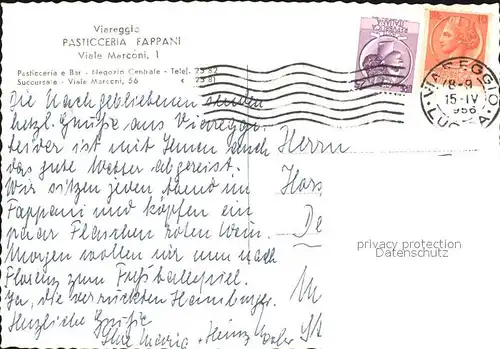 Viareggio
PASTICCERIA FAPPANI
Viale Marconi, 1
Pasticceria e Bar - Negozio Centrale - Telef. 25 82
Succursale - Viale Marconi, 56
VIAREGGIO
18-9
15-IV
956
LUCCA
Die Nach gebliebenen senden
herzl. Grüße aus Viareggio.
Leider ist mit Ihnen auch
das gute Wetter abgereist.
Wir sitzen jeden Abend im
Fappani und köpfen ein
paar Flaschen roten Wein.
Morgen wollen wir nun nach
Florenz zum Fußballspiel.
Ja, die verrückten Hamburger.
Herzliche Grüße
Ihre Maria + Heinz
Herrn
Hans
De
privacy protection
Datenschutz